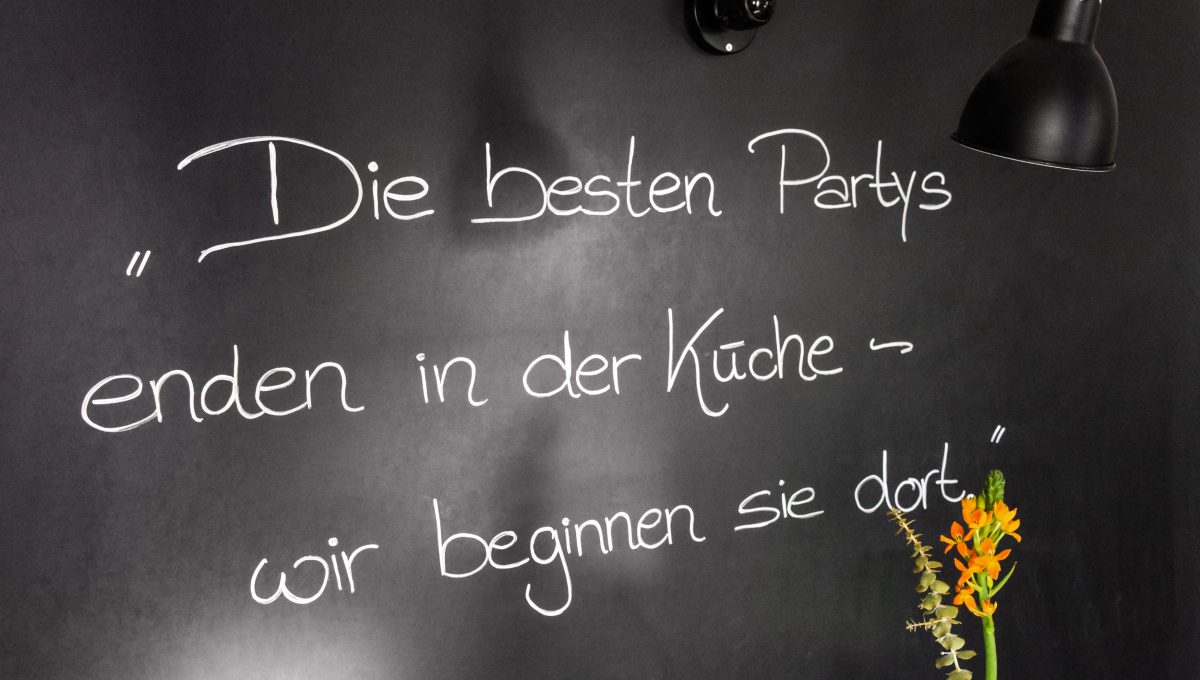 „Die besten Partys
enden in der Küche -
wir beginnen sie dort."